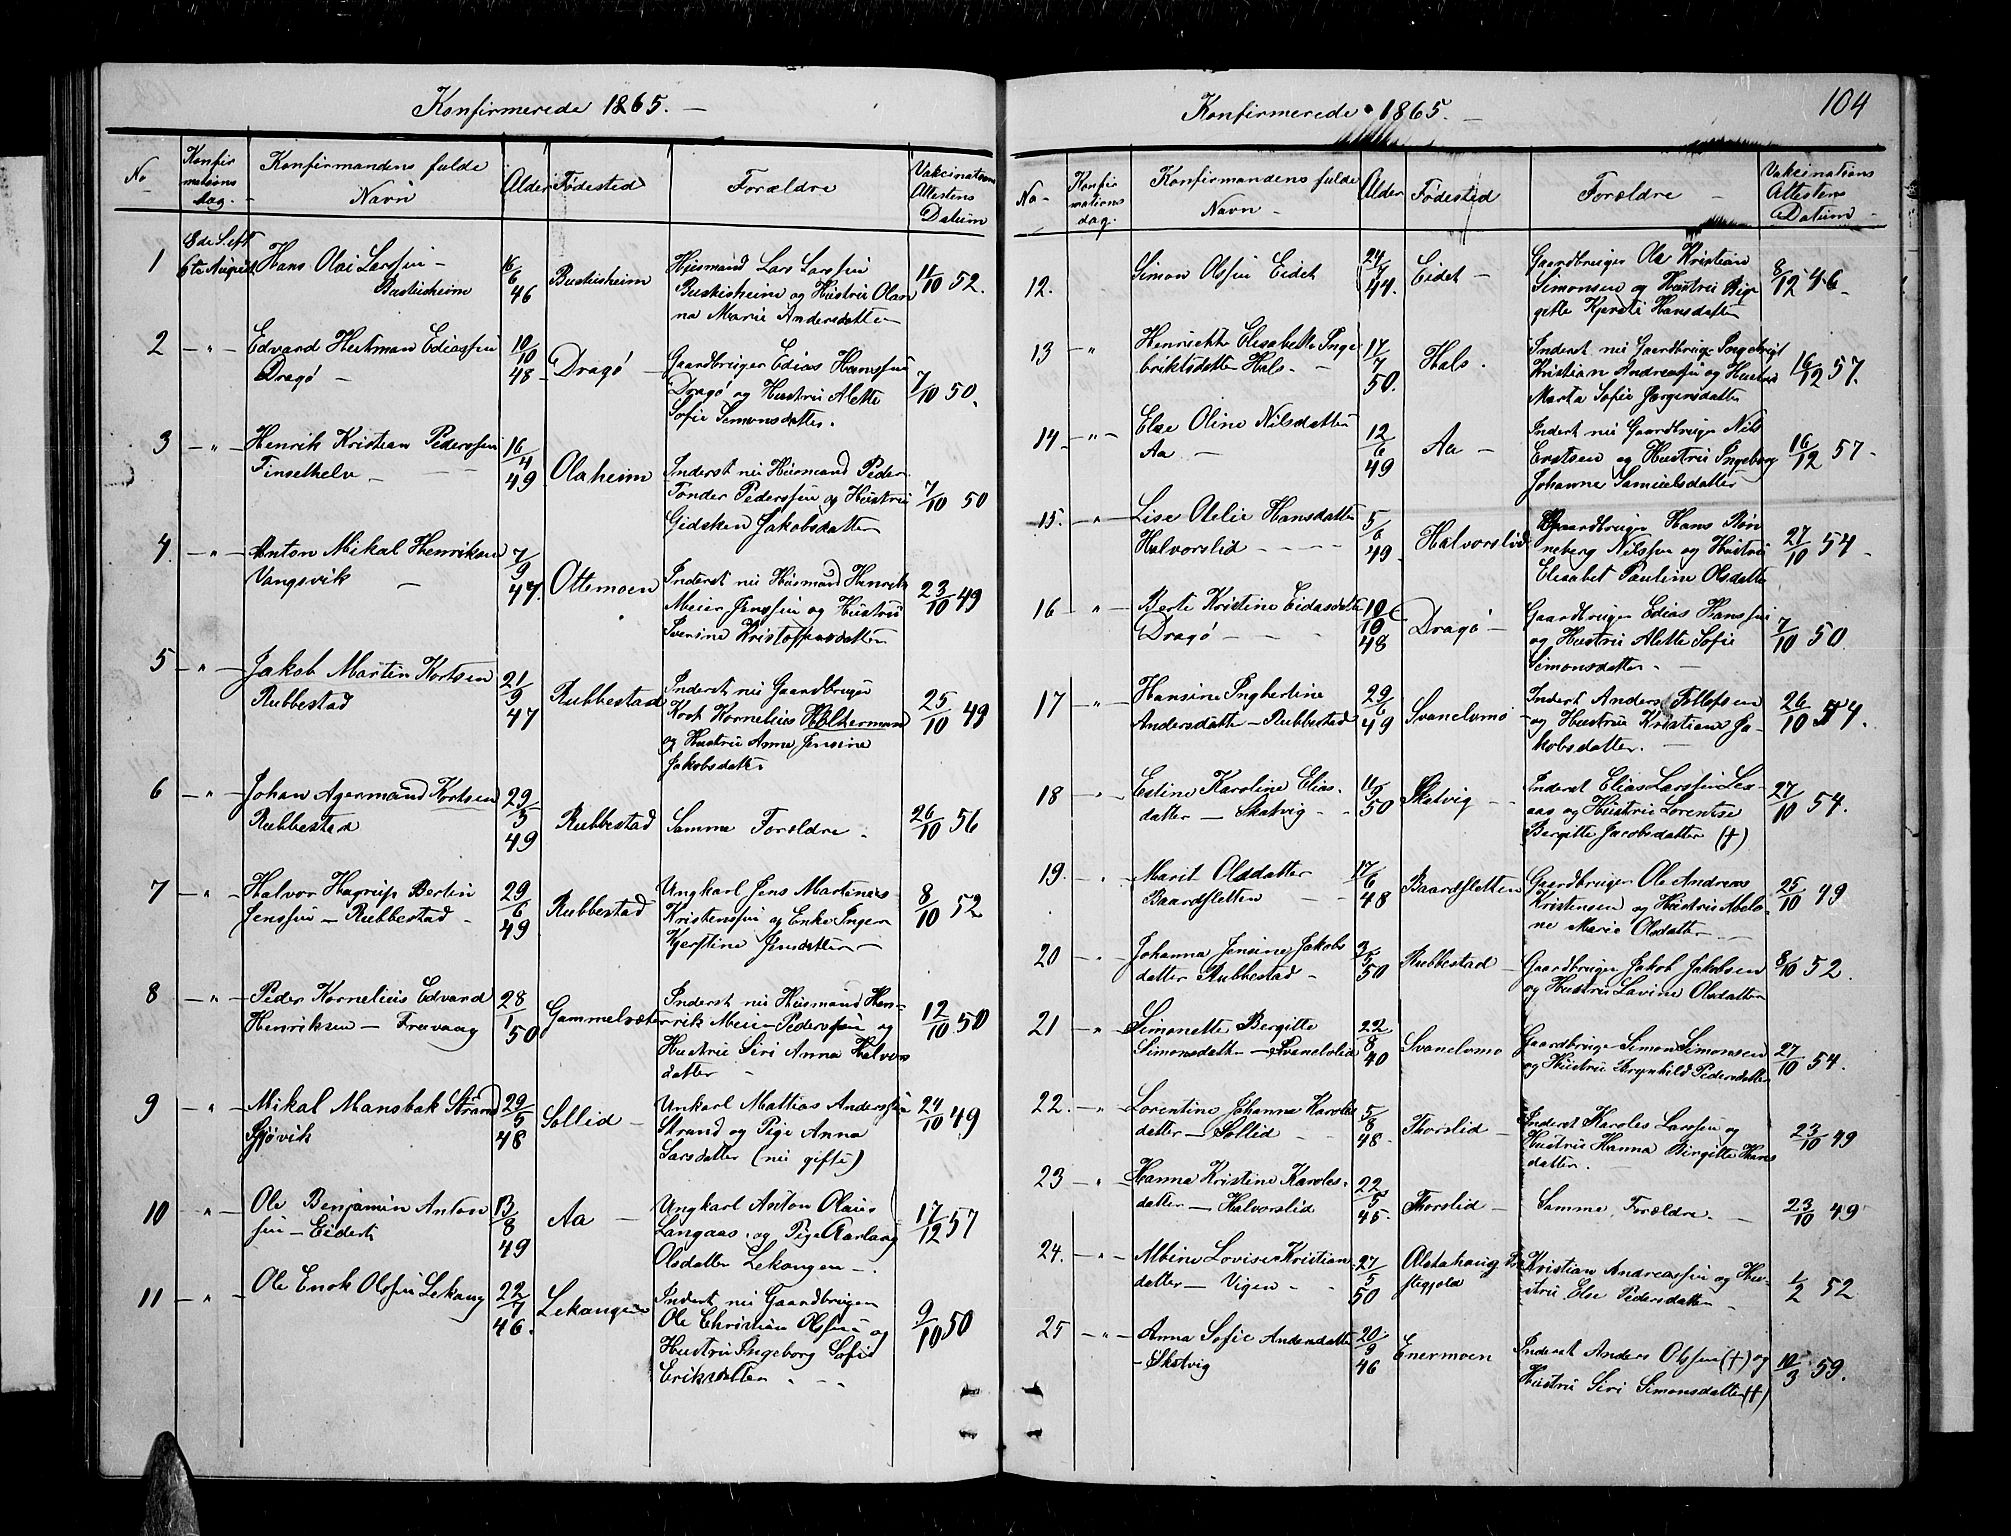 Konfirmerede 1865. —
No
Konfir
mations
dag. -
Konfirmandens fulde
Navn
Alder
Fødested
Forældre
Vakcinations
Attestens
Datum
1
8de Sept
6te August
Hans Olai Larssen -
6
46
Husmand Lars Larssen
og Hustru Olan
na Marie Andersdatter
11/10 52.
2 — " —
Edvard Hertman Ediassen
Dragø -
10/10
48
Dragø
Gaardbruger Edias Hanssen
Dragø og Hustru Alette
Sofie Simonsdatter.
7/10 50.
3 — " —
Henrik Kristian Pederssen
Finselkelv -
16/4
49
Olaheim
Inderst nu Husmand Peder
Tonder Pederssen og Hustru
Gidsken Jakobsdatter
7/10 50
4. — " —
Anton Mikal Henriksen
Vangsvik -
7/9
47.
Ottemoen
Inderst nu Husmand Henrik
Meier Jenssen og Hustru
Sverine Kristoffersdatter
23/10 49
5 — " —
Jakob Martin Kortsen
Rubbestad
21/9
47
Rubbestad
Inderst nu Gaardbruger
Kort Kornelius Holterman
og Hustru Anna Jensine
Jakobsdatter
25/10 49
6 — " —
Johan Agermand Kortsen
Rubbestad
29/5
49
Rubbestad
Samme Forældre.
26/10 56
7 — " —
Halvor Hagrup Bertin
Jenssen — Rubbestad -
29/6
49
Rubbestad
Ungkarl Jens Martinus
Kristenssen og Enke Inger
Kjerstine Jensdatter —
8/10 52
8 — " —
Peder Kornelius Edvard
Henriksen — Frovaag
28/1
50
Gammelsæter
Inderst nu Husmand Hen-
rik Meier Pederssen og
Hustru Siri Anna Halvors
datter -
12/10 50
9 — " —
Mikal Mansbak Strand
Gjøvik
29/5
48
Sollid —
Unkarl Mattias Anderssen
Strand og Pige Anna
Larsdatter (nu gifte)
24/10 49.
10 — " —
Ole Benjamin Anton
sen — Eidert
13/8
49
Aa —
Ungkarl Anton Olaus
Langaas, og Pige Aarlaug
Olsdatter Lekangen —.
17/12 57
11 — " —
Ole Enok Olssen Lekang
22/7
46.
Lekangen
Inderst nu Gaardbruger
Ole Christian Olssen og
Hustru Ingeborg Sofie
Eriksdatter
9/10 50
Konfirmerede 1865. —
104
No -
Konfir
mations
dag.
Konfirmandens fulde
Navn -
Alder
Fødested
Forældre -
Vakcinations
Attestens
Datum -
12.
Simon Olssen Eidet
24/7
47.
Eidet -
Gaardbruger Ole Kristian
Simonsen og Hustru Bir
gitte Kjersti Hansdatter
8/12 46 -
13 — "
Henriette Elisabeth Inge
briktsdatter Hals. -
17/7
50.
Hals.
Inderst nu Gaardbruger Ingebrigt
Kristian Andreassen og Hustru
Marta Sofie Jørgensdatter
16/12 57.
14 — " —
Else Oline Nilsdatter
Aa -
12/6
49
Aa —
Inderst nu Gaardbruger Nils
Erstsen og Hustru Ingeborg
Johanne Samuelsdatter
16/12 57 -
15. — " —
Lise Olelie Hansdatter
Halvorslid - - - -
5/6
49.
Halvorslid
Gaardbruger Hans Røn
neberg Nilssen og Hustru
Elisabet Pauline Olsdatter
27/10 54.
16 "
Berte Kristine Eidasdatter
Dragø - - -
10/10
48
Dragø —
Gaardbruger Edias Hanssen
og Hustru Alette Sofie
Simonsdatter. -
7/10 50.
17 — " —
Hansine Ingbertine
Andersdatter — Rubbestad
29/6
49
Svanelvmo
Inderst Anders Tollefsen
og Hustru Kristiana Ja
kobsdatter. -
26/10 54.
18 — " —
Estine Karoline Elias-
datter — Skatvig -
11/9
50
Skatvig —
Inderst Elias Larssen Lek
aas og Hustru Lorentse
Bergitte Jacobsdatter (†)
27/10 54.
19. — " —
Marit Olsdatter
Baardsletten
17/6
48
Baardsletten
Gaardbruger Ole Andreas
Kristensen og Hustru Abelo-
ne Marie Olsdatter -
25/10 49
20 — " —
Johanna Jensine Jakobs
datter Rubbestad -
50
Rubbestad —
Gaardbruger Jakob Jakobsen
og Hustru Lavine Olsdatter
8/10 52.
21 — " —
Simonette Bergitte
Simonsdatter — Svanelvlid
22/8
40
Svanelvmo
Gaardbruger Simon Simonsen
og Hustru Brynhild Pedersdatter
27/10 54.
22. — " —
Lorentine Johanna Karoles
datter — Sollid -
5/8
48 -
Thorslid —
Inderst Karoles Larssen og
Hustru Hanna Birgitte Hans
datter.
23/10 49
23 — " —
Hanna Kristine Karoles-
datter — Halvorslid
22/5
45.
Thorslid —
Samme Forældre. —
23/10 49
24. — " —
Albine Lovise Kristians
datter — Vigen - -
27/5
50
Alstahaug
Kristian Andreassen og Hu-
stru Else Pedersdatter -
1/2 52
25 — " —
Anna Sofie Andersdatter
— Skatvig
20/9
46
Enermoen
Inderst Anders Olssen (†) og
Hustru Siri Simonsdatter (†)
10/3 59.